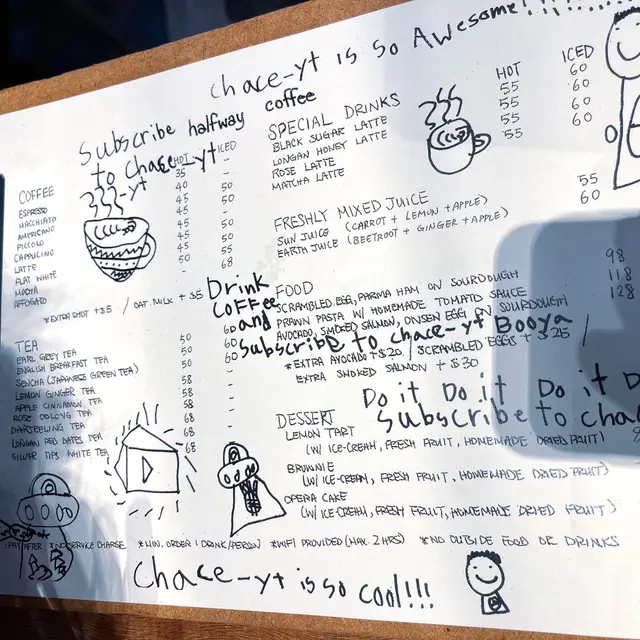 chace-yt is so Awesome!!!!
Subscribe halfway
to chace-yt
-yt
HOT ICED
COFFEE
ESPRESSO 35 -
MACCHIATO 40 -
AMERICANO 45 50
PICCOLO 45 -
CAPPUCINO 45 50
LATTE 45 50
FLAT WHITE 45 50
MOCHA 50 55
AFFOGATO - 68
*EXTRA SHOT +$5 / OAT MILK +$5
TEA
EARL GREY TEA 50 60
ENGLISH BREAKFAST TEA 50 60
SENCHA (JAPANESE GREEN TEA) 50 60
LEMON GINGER TEA 58 -
APPLE CINNAMON TEA 58 -
ROSE OOLONG TEA 58 -
DARJEELING TEA 68 -
LONGAN RED DATES TEA 68 -
SILVER TIPS WHITE TEA 68 -
coffee
HOT ICED
SPECIAL DRINKS
BLACK SUGAR LATTE 55 60
LONGAN HONEY LATTE 55 60
ROSE LATTE 55 60
MATCHA LATTE 55 60
FRESHLY MIXED JUICE
SUN JUICE (CARROT + LEMON + APPLE) 55
EARTH JUICE (BEETROOT + GINGER + APPLE) 60
Drink
coffee
and
subscribe to chace-yt Booya
FOOD
SCRAMBLED EGG, PARMA HAM ON SOURDOUGH 98
PRAWN PASTA W/ HOMEMADE TOMATO SAUCE 118
AVOCADO, SMOKED SALMON, ONSEN EGG ON SOURDOUGH 128
*EXTRA AVOCADO +$20 / SCRAMBLED EGGS +$25 /
EXTRA SMOKED SALMON +$30
Do it Do it Do it D
Subscribe to cha
DESSERT
LEMON TART
(W/ ICE-CREAM, FRESH FRUIT, HOMEMADE DRIED FRUIT)
BROWNIE
(W/ ICE-CREAM, FRESH FRUIT, HOMEMADE DRIED FRUIT)
OPERA CAKE
(W/ ICE-CREAM, FRESH FRUIT, HOMEMADE DRIED FRUIT)
*NO SERVICE CHARGE *MIN. ORDER 1 DRINK/PERSON *WIFI PROVIDED (MAX. 2 HRS) *NO OUTSIDE FOOD OR DRINKS
Chace-yt is so cool!!!